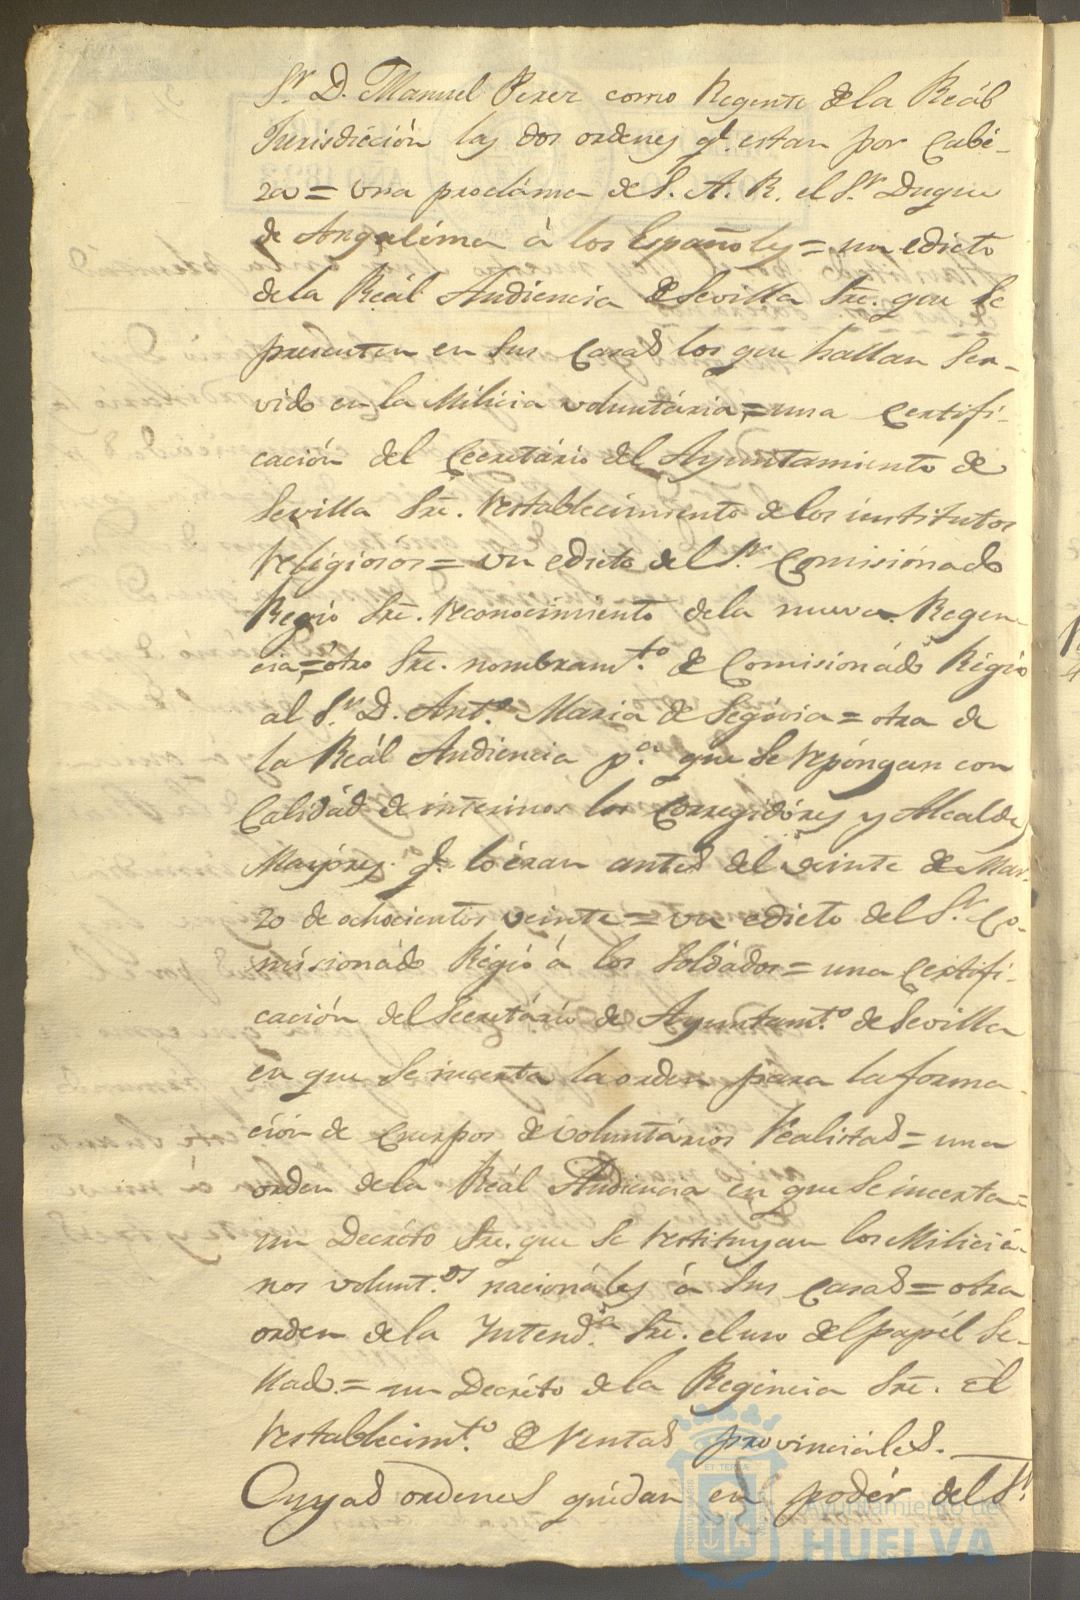 Sr. D. Manuel Perez como Regente de la Reál
Jurisdicción las dos ordenes qe. estan por Cabé-
za = una procláma de S. A. R. el Sr. Duque
de Angulema á los Españoles = un edicto
de la Reál Audiencia de Sevilla Sre. que se
presenten en sus Casas los que hallan ser-
vido en la Milicia voluntária, = una Certifi-
cación del Secretário del Ayuntamiento de
Sevilla Sre. restablecimiento de los institutos
religiosos = un edicto del Sr. Comisionado
Regio Sre. reconocimiento de la nueva Regen-
cia = ótro Sre. nombramto. de Comisionádo Régio
al Sr. D. Anto. Maria de Segóvia = otra de
la Reál Audiencia pa. que se repóngan con
Calidád de interinos los Corregidóres y Alcaldes
Mayóres. qe. lo éran antes del veinte de Mar-
zo de ochocientos veinte = un edicto del Sr. Co-
misionádo Régio á los Soldádos = una Certifi-
cación del Secretário de Ayuntamto. de Sevilla
en que se incerta la orden para la forma-
ción de Cuerpos de voluntários realistas = una
orden de la Reál Audiencia en que se incerta =
un Decréto Sre. que se restituyan los Miliciá-
nos volunt.os nacionáles á sus Casas = otra
orden de la Yntenda. Sre. el uso del papél Se-
llado. = un Decréto de la Regéncia Sre. él
restablecimto. de rentas provinciáles. -
Cuyas ordenes quédan en podér del Sr.
Ayuntamiento de
HUELVA